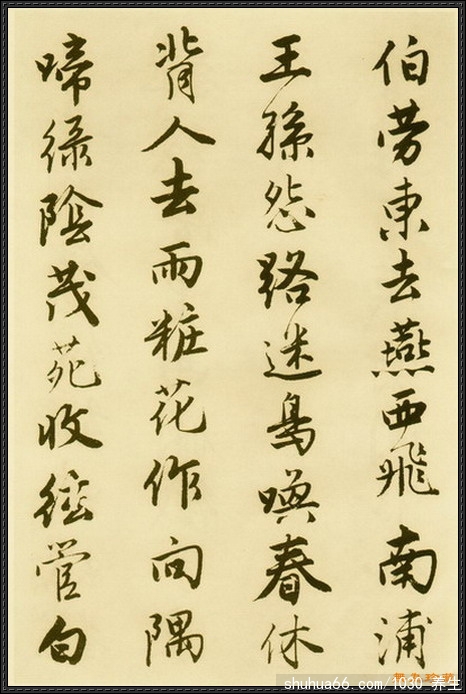 伯劳東去燕西飛南浦
王孫怨路迷鳥喚春休
背人去雨粧花作向隅
啼緑陰茂苑收絃管白
shuhua66.com/1030 养生